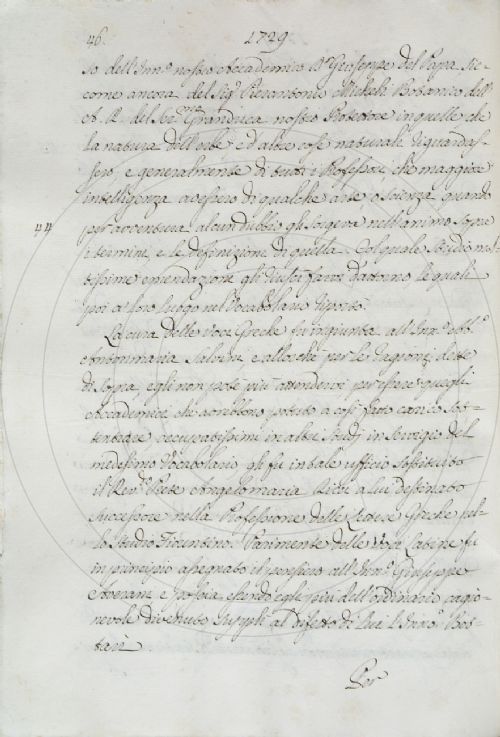 46. 1729
so dell'Inn.º nostro Accademico Dr. Giuseppe del Papa, sic-
come ancora del Sig.r Pierantonio Micheli Botanico dell'
A. R. del Ser.mo Granduca nostro Protettore in quelle che
la natura dell'erbe e d'altre cose naturali riguardas-
sero, e generalmente di tutti i Professori, che maggiore
intelligenza avessero di qualche arte o scienza, quando
44 per avventura alcun dubbio gli sorgeva nell'animo sopra
i termini, e le definizioni di quella. Col quale studio mol-
tissime emendazioni gli venner fatte dattorno le quali
poi a' loro luoghi nel Vocabolario riportò.
La cura delle voci Greche fu ingiunta all'Inn.º Abb.e
Antonmaria Salvini, e allorchè per le cagioni dette
di sopra, egli non potè più attendervi per essere quegli
Accademici che avrebbono potuto a così fatto carico sot-
tentrare occupatissimi in altri studj in servigio del
medesimo Vocabolario gli fu in tale ufficio sostituito
il Rev.º Prete Angelomaria Ricci a lui destinato
successore nella Professione delle Lettere Greche nel-
lo Studio Fiorentino. Parimente delle Voci Latine fu
in principio assegnato il pensiero all'Inn.º Giuseppe
Averani e poscia essendo egli più dell'ordinario cagio-
nevole divenuto supplì al difetto di Lui l'Inn.º Bot-
tari.
Per